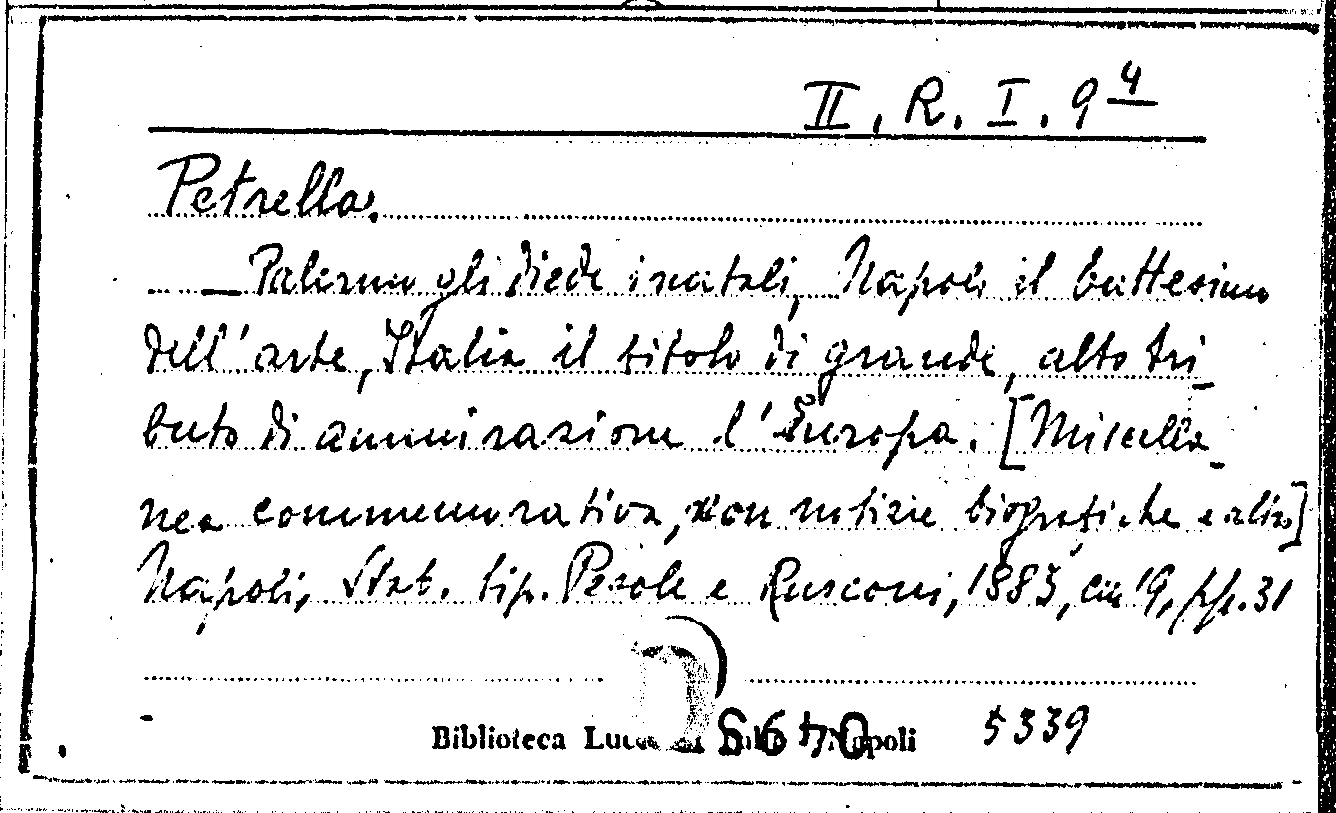 II. R. I. 9 4
Petrella.
_ Palermo gli diede i natali, Napoli il battesimo
dell'arte, Italia il titolo di grande, alto tri_
buto di ammirazione l'Europa. [Miscella_
nea commemorativa, con notizie biografiche e altro]
Napoli, Stab. tip. Pesole e Rusconi, 1883, cm 19, pp. 31
Biblioteca Napoli 5339
S640